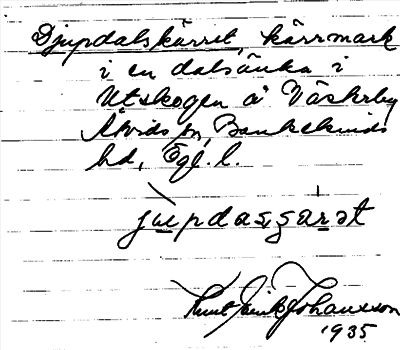 Djupdalskärret, kärrmark
i en dalsänka i
Utskogen å Väskerby
Åtvids sn, Bankekinds
hd, Ögl. l.
Knut Erik Johansson
1935